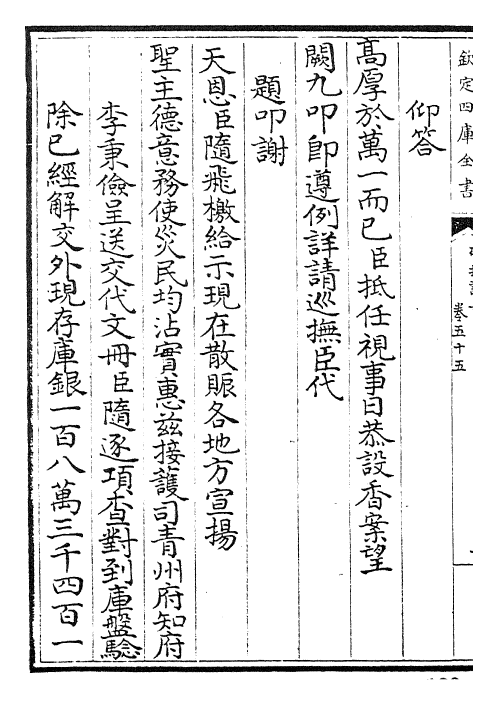 欽定四庫全書
卷五十五
仰答
高厚於萬一而已臣抵任視事日恭設香案望
闕九叩即遵例詳請巡撫臣代
題叩謝
天恩臣隨飛檄給示現在散賑各地方宣揚
聖主德意務使災民均沾實惠兹接護司青州府知府
李秉儉呈送交代文冊臣隨逐項查對到庫盤驗
除已經解交外現存庫銀一百八萬三千四百一